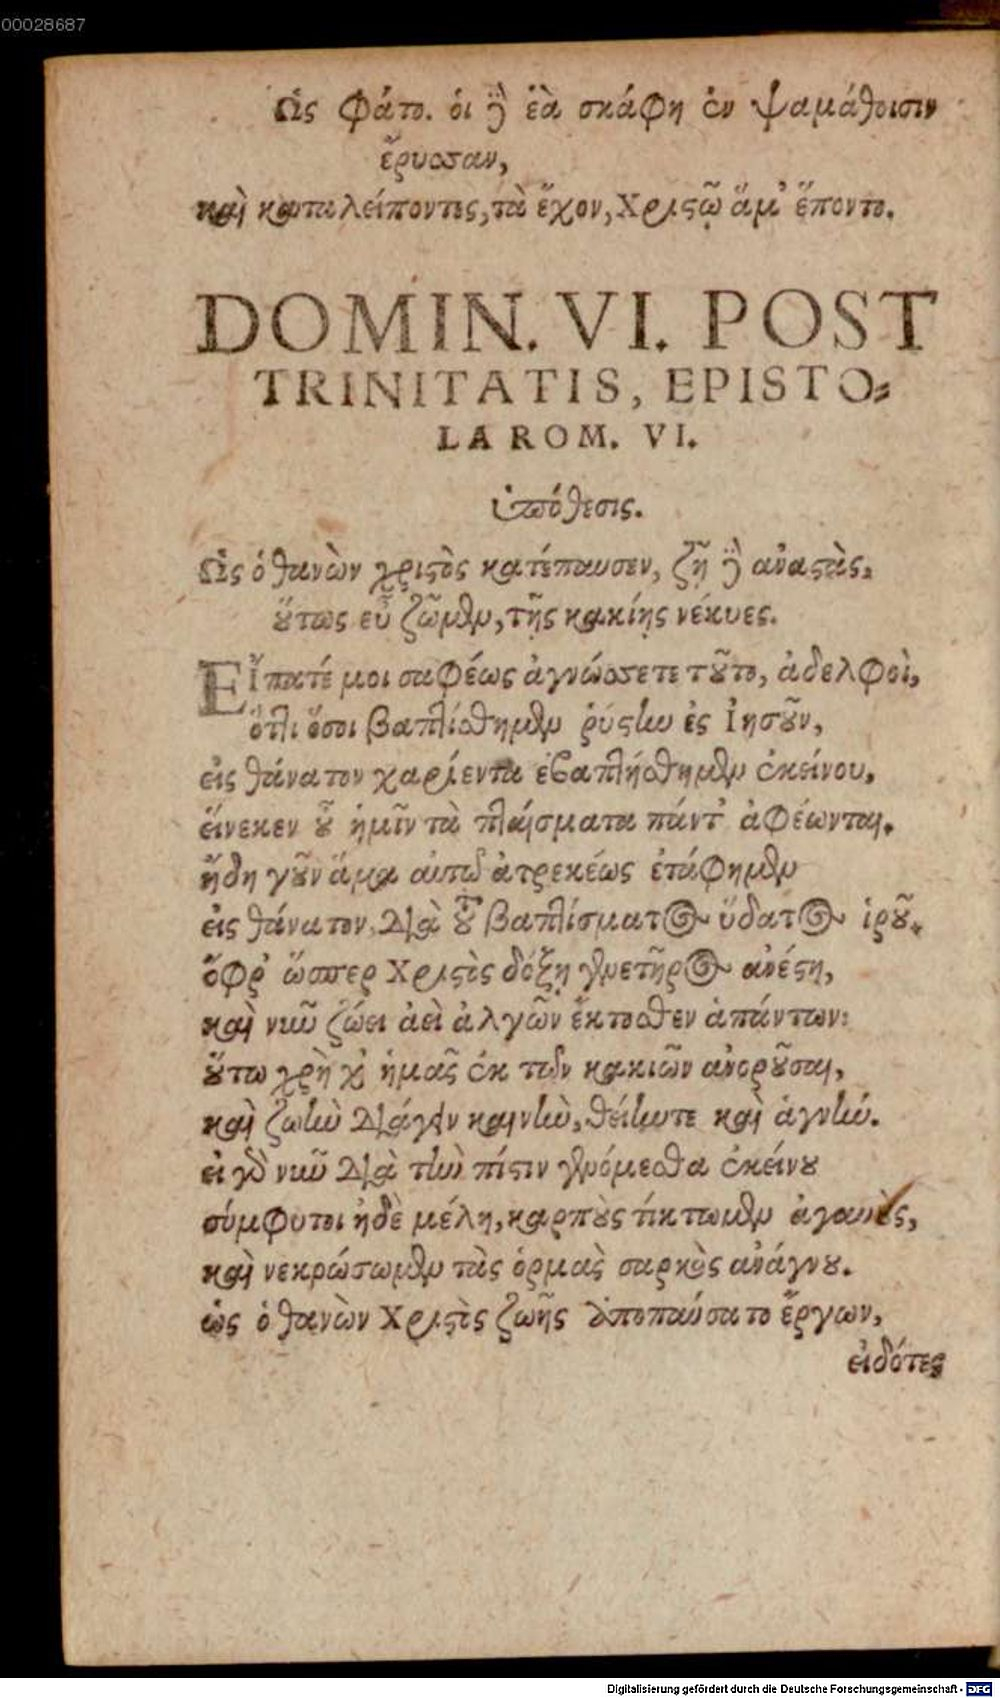 00028687
Ὣς φάτο. οἱ δ᾽ ἐὰ σκάφη ἐν ψαμάθοισιν
ἔρυσσαν,
καὶ καταλείποντες, τὰ ἔχον, Χριστῷ ἅμ᾽ ἕποντο.
DOMIN. VI. POST
TRINITATIS, EPISTO=
LA ROM. VI.
ὑπόθεσις.
Ὡς ὁ θανὼν χριστὸς κατέπαυσεν, ζῇ δ᾽ ἀναστὰς,
οὕτως εὖ ζῶμεν, τῆς κακίης νέκυες.
Εἴπατέ μοι σαφέως ἀγνώσσετε τοῦτο, ἀδελφοὶ,
ὅτλι ὅσοι βαπτίσθημεν ῥύστην ἐς Ἰησοῦν,
εἰς θάνατον χαρίεντα ἐβαπτήσθημεν ἐκείνου,
εἵνεκεν οὗ ἡμῖν τὰ πταίσματα πάντ᾽ ἀφέωνται.
ἤδη γοῦν ἅμα αὐτῷ ἀτρεκέως ἐτάφημεν
εἰς θάνατον, διὰ τοῦ βαπτίσματος ὕδατος ἱροῦ.
ὄφρ᾽ ὥσπερ Χριστὸς δόξῃ γενετῆρος ἀνέστη,
καὶ νῦν ζώει ἀεὶ ἀλγῶν ἔκτοσθεν ἁπάντων:
οὕτω χρὴ καὶ ἡμᾶς ἐκ τῶν κακιῶν ἀνορῦσαι,
καὶ ζωὴν διάγειν καινὴν, θείην τε καὶ ἁγνήν.
εἰ γὰρ νῦν διὰ τὴν πίστιν γενόμεσθα ἐκείνου
σύμφυτοι ἠδὲ μέλη, καρποὺς τίκτωμεν ἀγαυοὺς,
καὶ νεκρώσωμεν τὰς ὁρμὰς σαρκὸς ἀνάγνου.
ὡς ὁ θανὼν Χριστὸς ζωῆς ἀποπαύσατο ἔργων,
εἰδότες
Digitalisierung gefördert durch die Deutsche Forschungsgemeinschaft - DFG